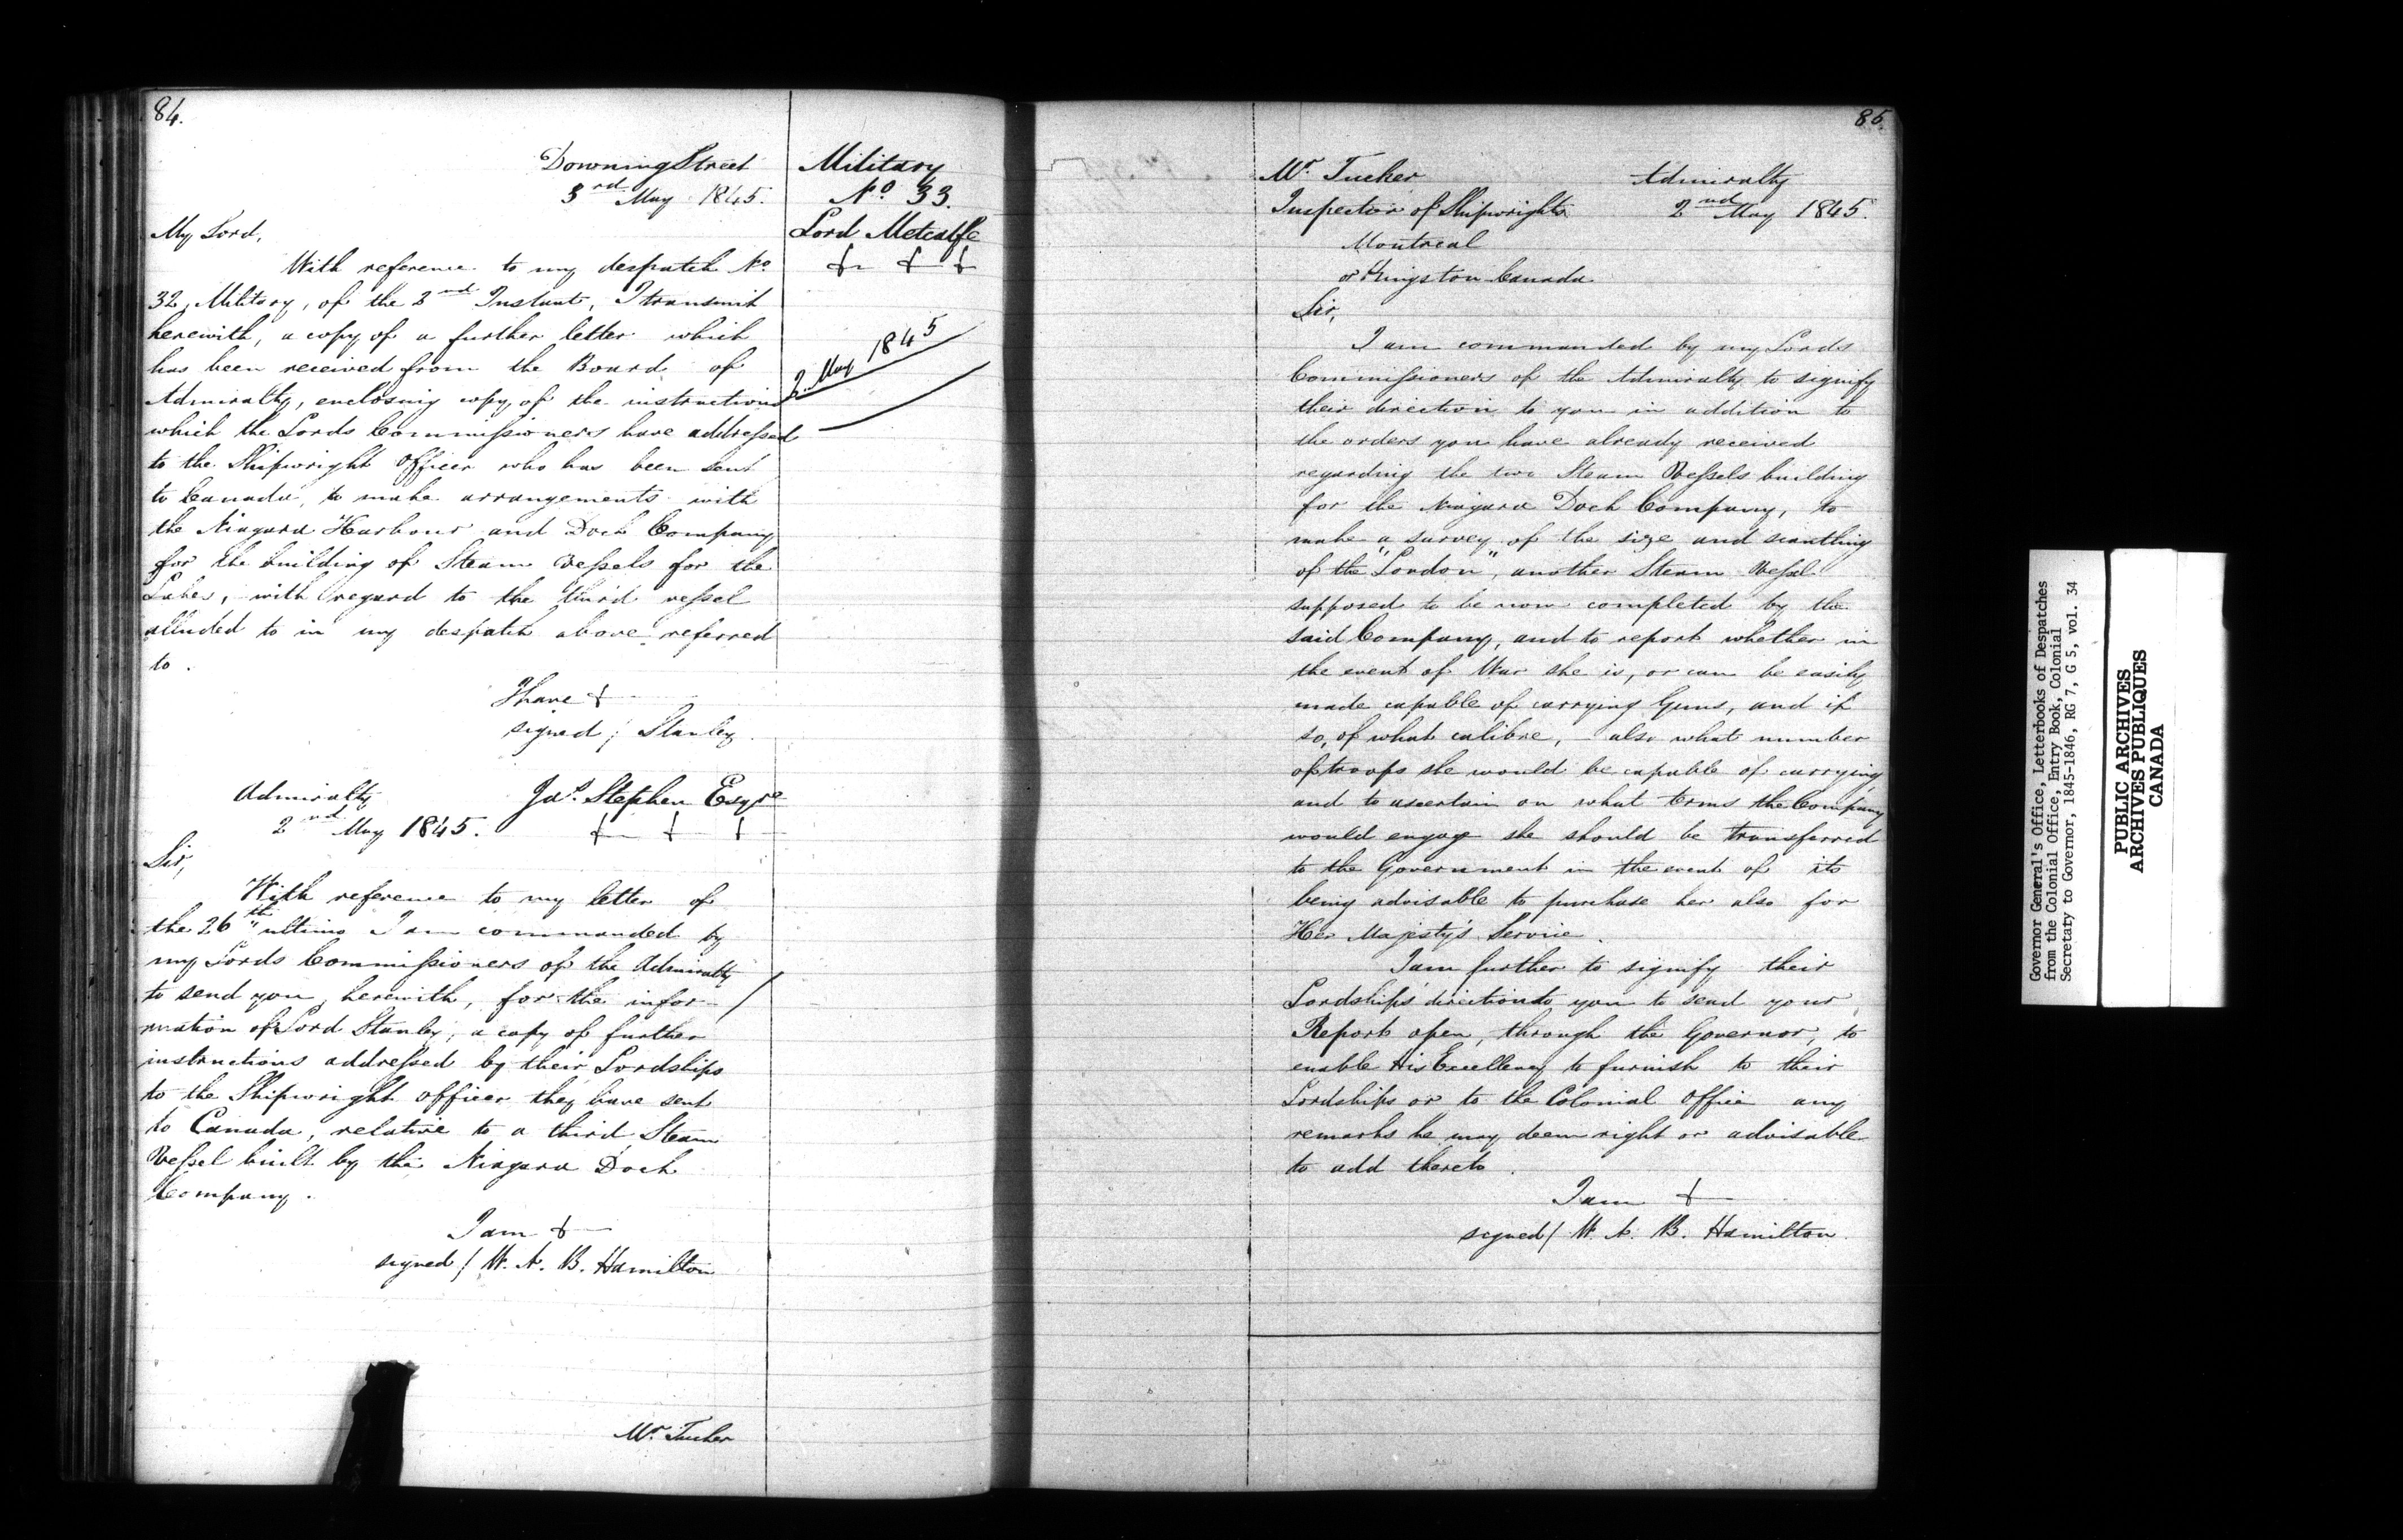 84.
Downing Street
3rd May 1845.
Military
No. 33.
Lord Metcalfe
My Lord,
With reference to my despatch No.
32, Military, of the 2nd Instant, I transmit
herewith, a copy of a further letter which
has been received from the Board of
Admiralty, enclosing copy of the instructions
2 May 1845
which the Lords Commissioners have addressed
to the Shipwright Officer who has been sent
to Canada, to make arrangements with
the Niagara Harbour and Dock Company
for the building of Steam Vessels for the
Lakes, with regard to the third vessel
alluded to in my despatch above referred
to.
I have &
signed / Stanley
Admiralty
2nd May 1845.
Jas. Stephen Esqre
& & &
Sir,
With reference to my letter of
the 26th ultimo I am commanded by
my Lords Commissioners of the Admiralty
to send you, herewith, for the infor-
mation of Lord Stanley, a copy of further
instructions addressed by their Lordships
to the Shipwright officer they have sent
to Canada, relative to a third Steam
Vessel built by the Niagara Dock
Company.
I am &
signed / W. A. B. Hamilton
Mr. Tucker
85.
Mr. Tucker
Inspector of Shipwrights
Montreal
or Kingston Canada
Admiralty
2nd May 1845.
Sir,
I am commanded by my Lords
Commissioners of the Admiralty to signify
their direction to you in addition to
the orders you have already received
regarding the two Steam Vessels building
for the Niagara Dock Company, to
make a survey of the size and scantling
of the "London", another Steam Vessel
supposed to be now completed by the
said Company, and to report whether in
the event of War she is, or can be easily
made capable of carrying Guns, and if
so, of what calibre, also what number
of troops she would be capable of carrying,
and to ascertain on what terms the Company
would engage she should be transferred
to the Government in the event of its
being advisable to purchase her also for
Her Majesty's Service.
I am further to signify their
Lordships' direction to you to send your
Report open, through the Governor, to
enable His Excellency to furnish to their
Lordships or to the Colonial Office any
remarks he may deem right or advisable
to add thereto.
I am &
signed / W. A. B. Hamilton
Governor General's Office, Letterbooks of Despatches
from the Colonial Office, Entry Book, Colonial
Secretary to Governor, 1845-1846, RG 7, G 5, vol. 34
PUBLIC ARCHIVES
ARCHIVES PUBLIQUES
CANADA